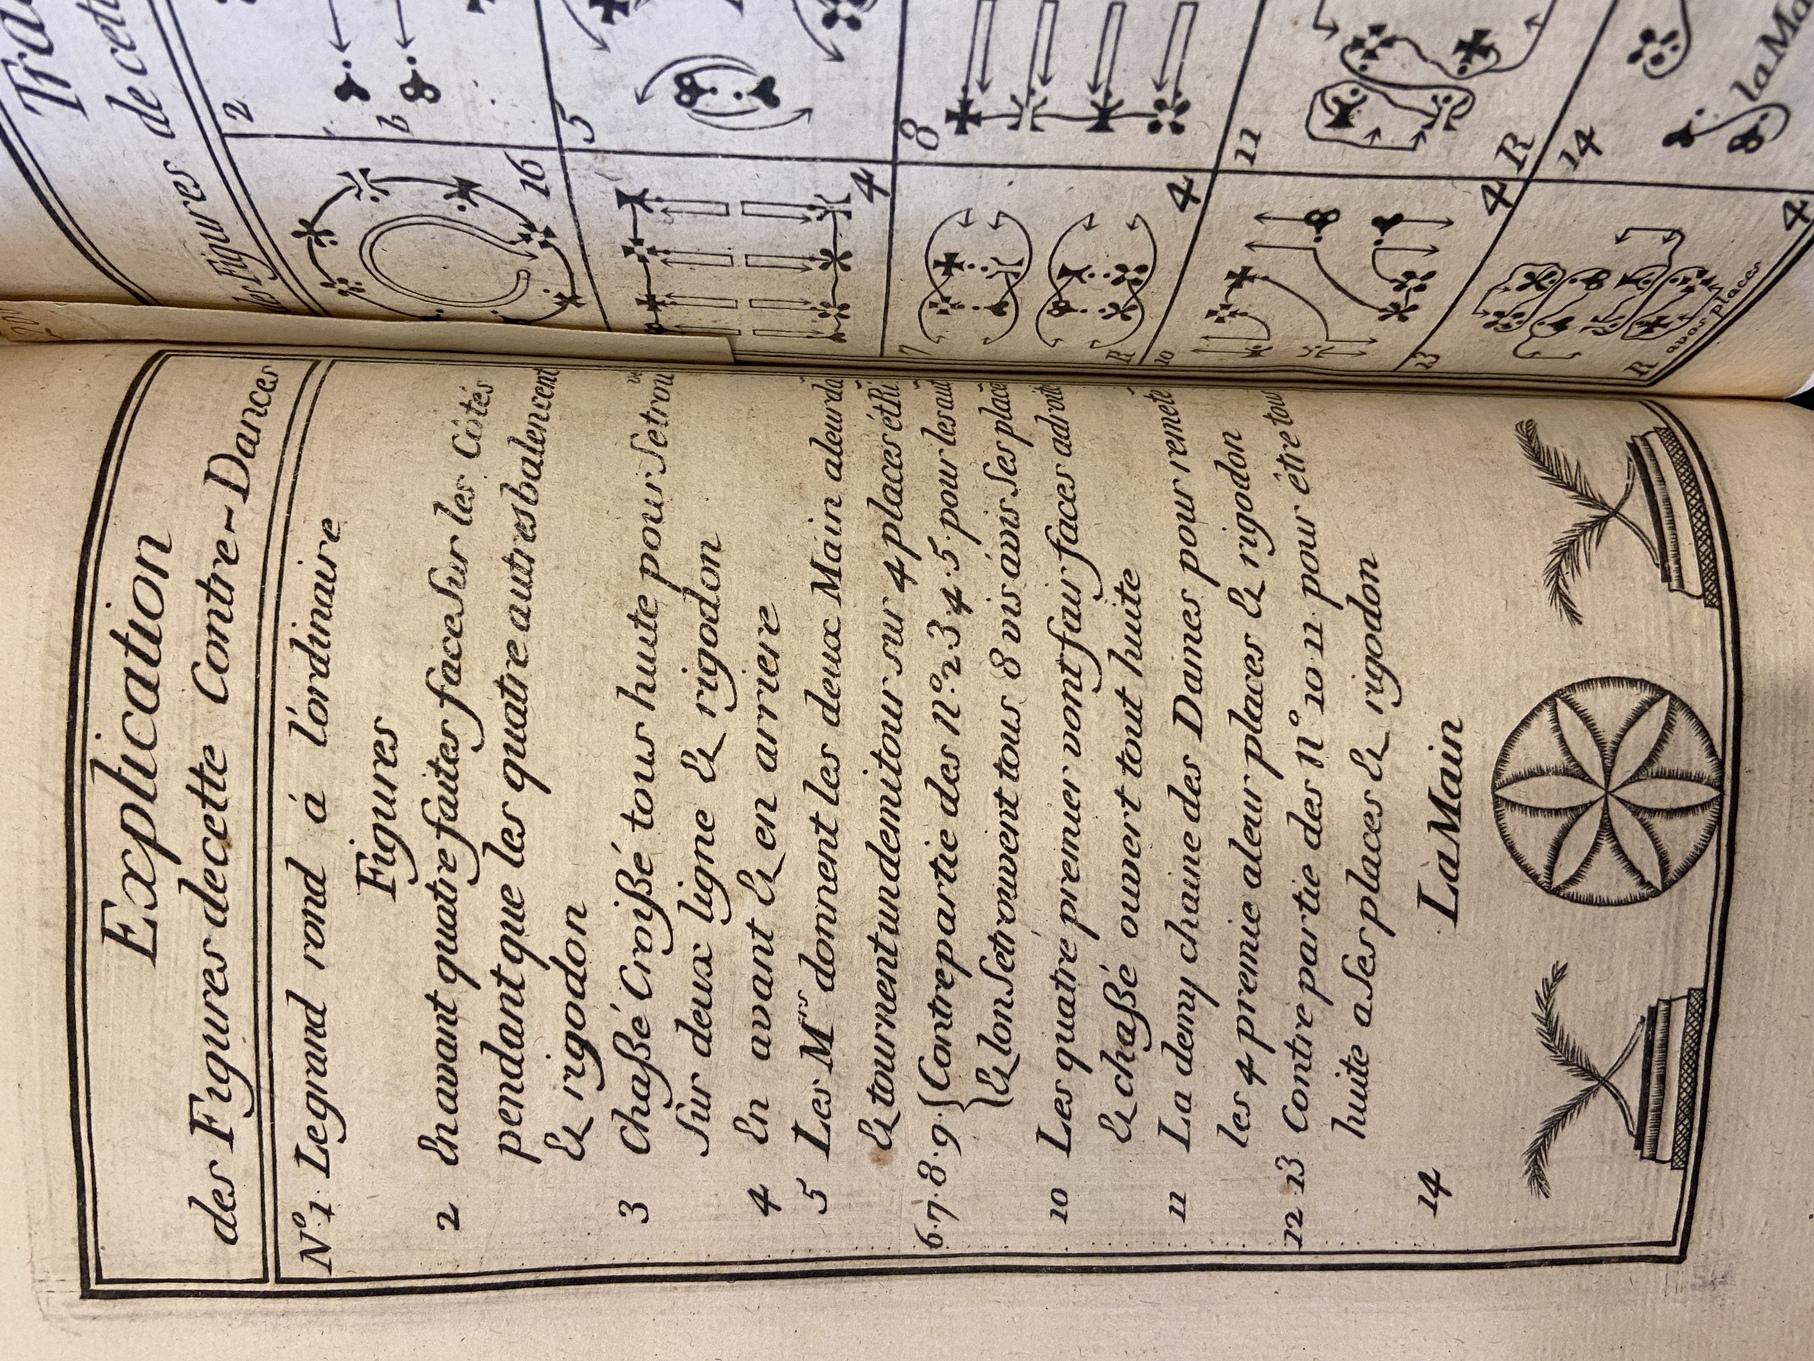 Explication
des Figures decette Contre-Dances
N.º 1 Legrand rond á l'ordinaire
Figures
2 En avant quatre faites face sur les Côtés
pendant que les quatre autres balencent
& rigodon
3 Chaßé Croißé tous huite pour Setrou
Sur deux ligne & rigodon
4 En avant & en arriere
5 Les M.rs donnent les deux Main aleurda
& tournent un demitour sur 4 places ét
6·7·8·9· Contrepartie des N.º 2 3 4·5·pour les
& lon Setrouvent tous 8 vis ávis Ses place
10 Les quatré premier vont fair faces adroite
& chaßé ouvert tout huite
11 La demy chaine des Dames pour remete
les 4 premie aleur places & rigodon
12 13 Contre partie des N.º 10 11 pour étre tou
huite a Ses places & rigodon
14 La Main
Tra
de cett
des Figures
2
b
16
5
4
8
7
R
4
11
10
R
4
14
la Ma
13
R avos places
4